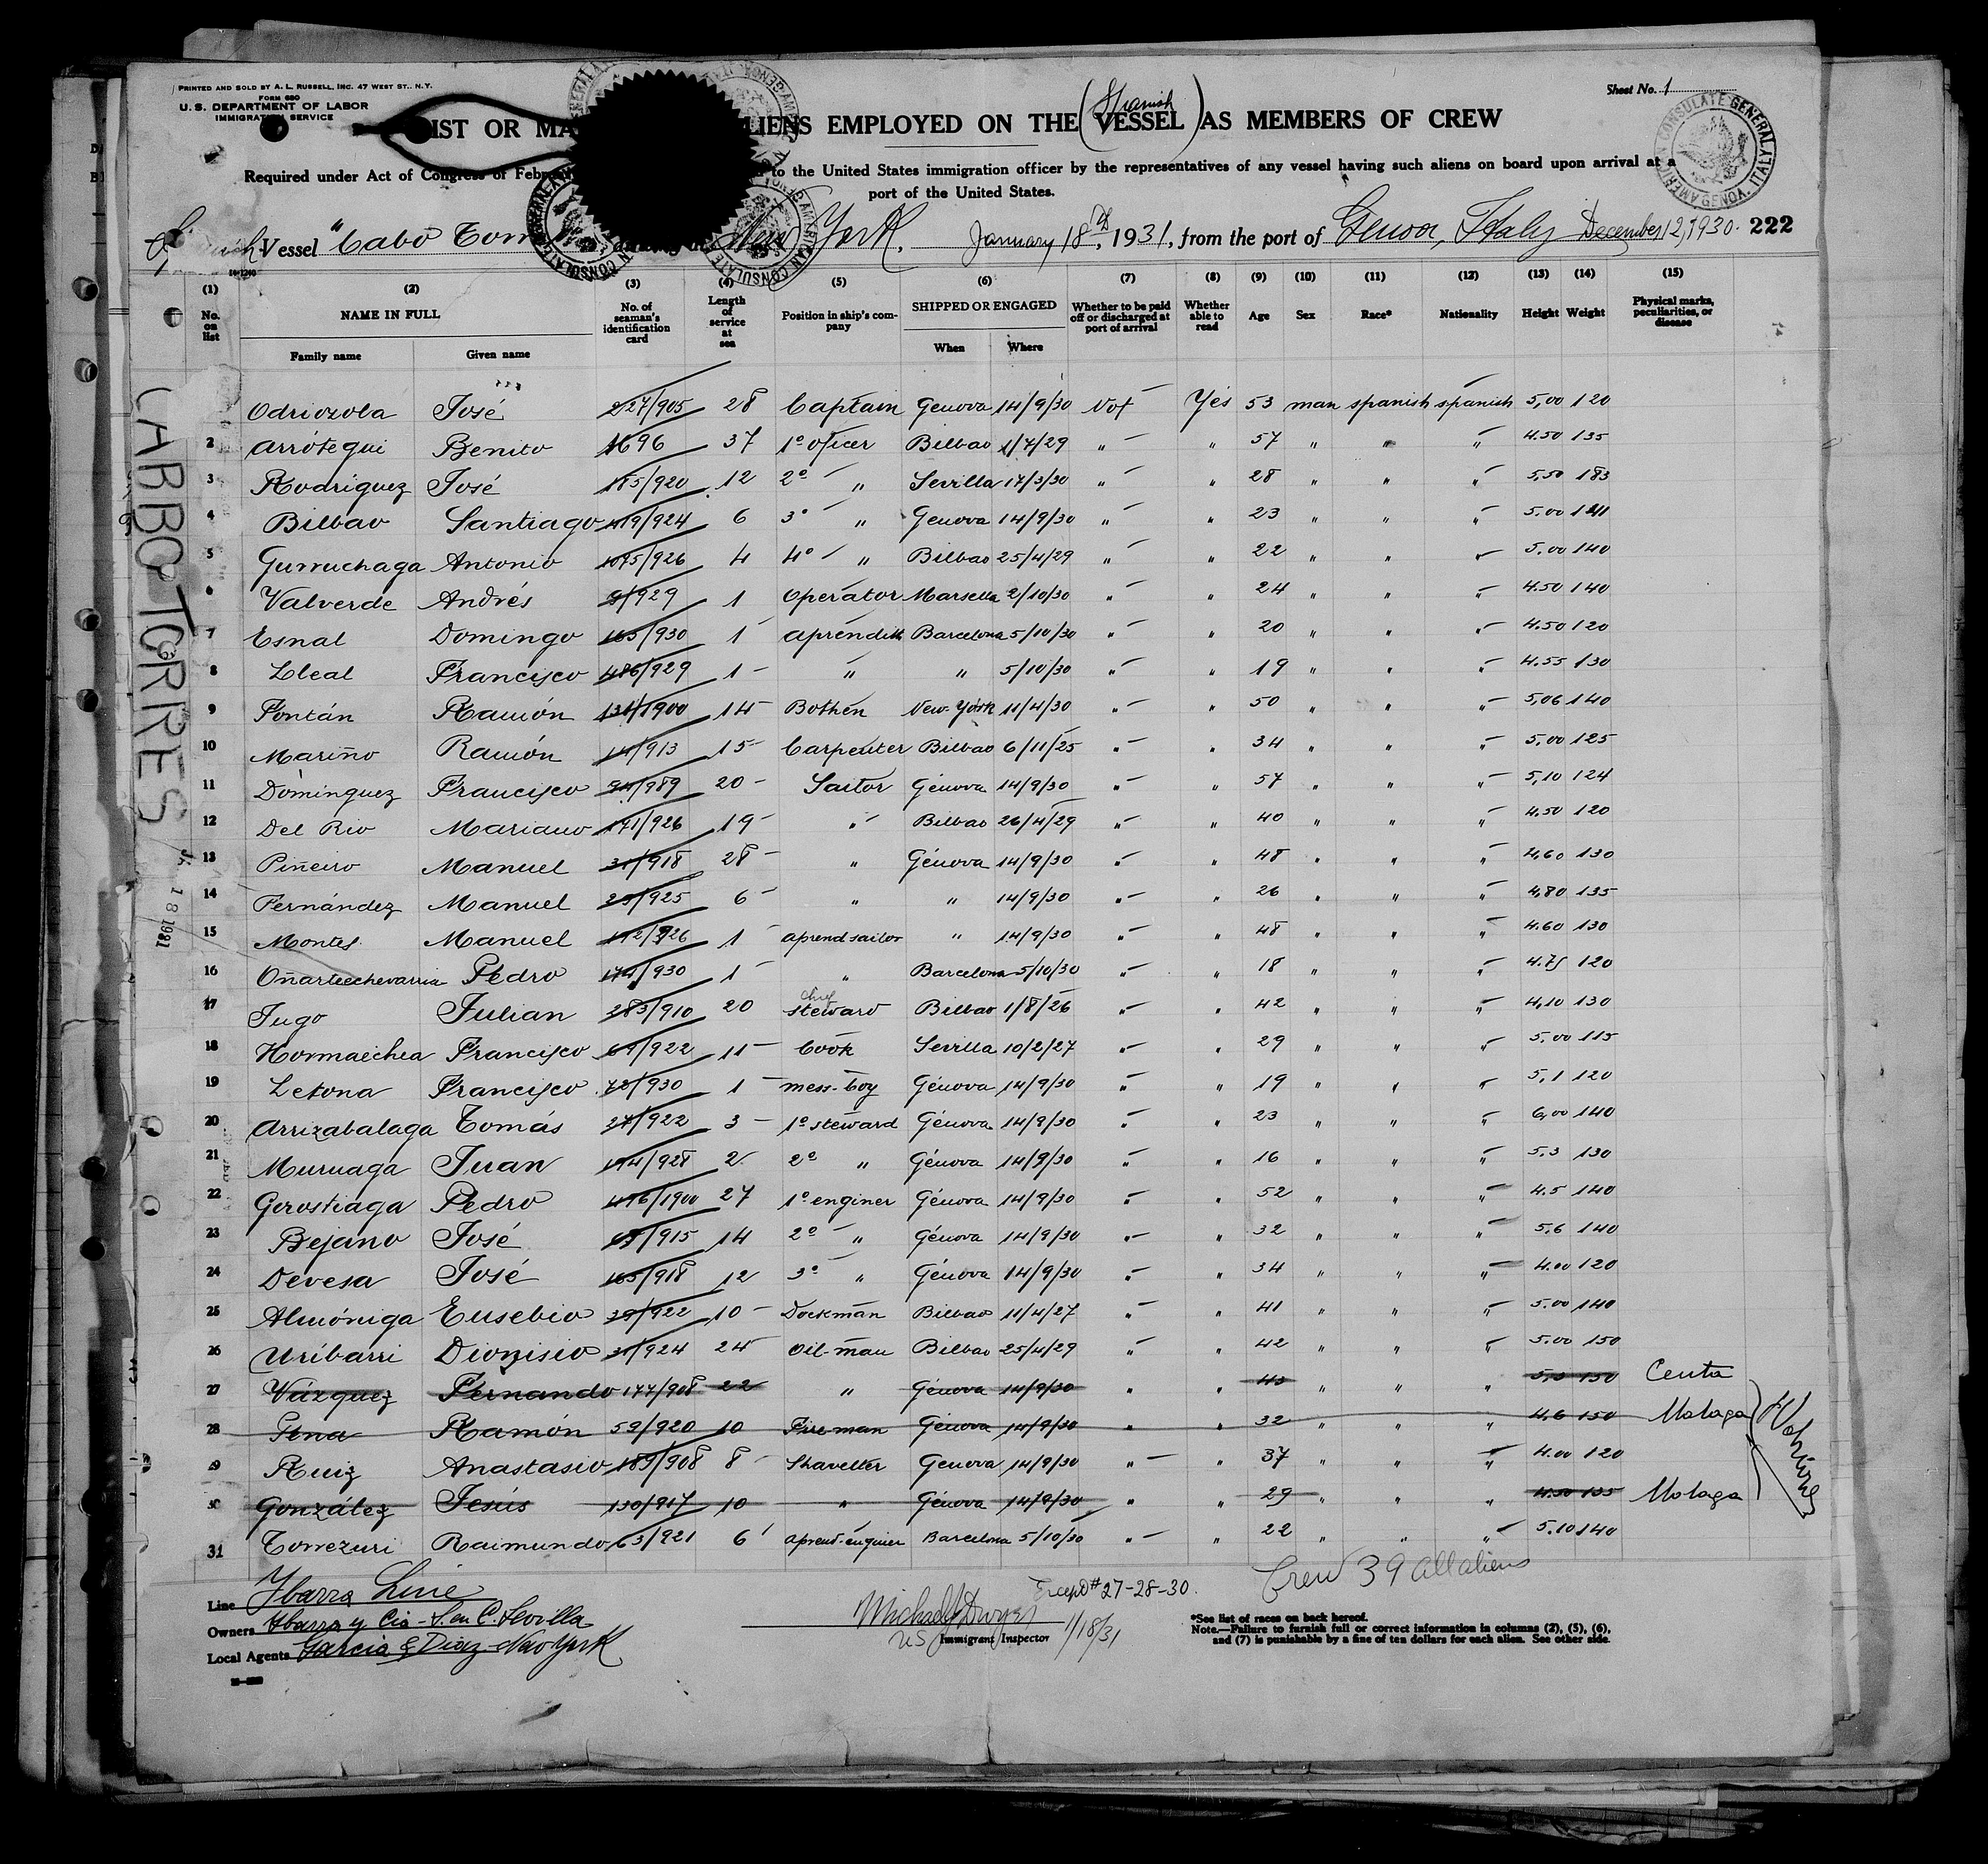 PRINTED AND SOLD BY A. L. RUSSELL, INC. 47 WEST ST., N.Y.
FORM 680
U. S. DEPARTMENT OF LABOR
IMMIGRATION SERVICE
Sheet No. 1
LIST OR MA ALIENS EMPLOYED ON THE (Spanish VESSEL) AS MEMBERS OF CREW
Required under Act of Congress of to the United States immigration officer by the representatives of any vessel having such aliens on board upon arrival at a
port of the United States.
AMERICAN CONSULATE GENERAL GENOVA, ITALY
Vessel "Cabo Torr New York, January 18th, 1931, from the port of Genova, Italy December 12, 1930. 222
(1) (2) (3) (4) (5) (6) (7) (8) (9) (10) (11) (12) (13) (14) (15)
No. on list NAME IN FULL Family name Given name No. of seaman's identification card Length of service at sea Position in ship's company SHIPPED OR ENGAGED When Where Whether to be paid off or discharged at port of arrival Whether able to read Age Sex Race* Nationality Height Weight Physical marks, peculiarities, or disease
CABO TORRES
Odriozola José 227/905 28 Captain Genova 14/9/30 Not Yes 53 man spanish spanish 5,00 120
2 Arrótegui Benito 1696 37 1º oficer Bilbao 1/7/29 " " 57 " " " 4.50 135
3 Rodriguez José 185/920 12 2º " Sevilla 17/3/30 " " 28 " " " 5,50 183
4 Bilbao Santiago 419/924 6 3º " Genova 14/9/30 " " 23 " " " 5.00 141
5 Gurruchaga Antonio 1075/926 4 4º " Bilbao 25/4/29 " " 22 " " " 5.00 140
6 Valverde Andrés 9/929 1 Operator Marsella 2/10/30 " " 24 " " " 4.50 140
7 Esnal Domingo 165/930 1 Barcelona 5/10/30 " " 20 " " " 4.50 120
8 Lleal Francisco 486/929 1 " " 5/10/30 " " 19 " " " 4.55 130
9 Fontán Ramón 131/1900 14 Bothen New-York 11/4/30 " " 50 " " " 5,06 140
10 Mariño Ramón 14/913 15 Carpenter Bilbao 6/11/25 " " 34 " " " 5,00 125
11 Dominguez Francisco 94/989 20 Sailor Génova 14/9/30 " " 57 " " " 5,10 124
12 Del Rio Mariano 171/926 19 " Bilbao 26/4/29 " " 40 " " " 4.50 120
13 Piñeiro Manuel 31/918 28 " Génova 14/9/30 " " 48 " " " 4,60 130
14 Fernández Manuel 25/925 6 " " 14/9/30 " " 26 " " " 4,80 135
15 Montes Manuel 192/926 1 aprend sailor " 14/9/30 " " 48 " " " 4.60 130
16 Oñarteechevarria Pedro 174/930 1 " Barcelona 5/10/30 " " 18 " " " 4.75 120
17 Jugo Julian 283/910 20 chief steward Bilbao 1/8/26 " " 42 " " " 4,10 130
18 Hormaechea Francisco 69/922 11 Cook Sevilla 10/2/27 " " 29 " " " 5,00 115
19 Letona Francisco 78/930 1 mess-boy Génova 14/9/30 " " 19 " " " 5,1 120
20 Arrizabalaga Tomás 27/922 3 1º steward Génova 14/9/30 " " 23 " " " 6,00 140
21 Muruaga Juan 194/928 2 2º " Génova 14/9/30 " " 16 " " " 5.3 130
22 Gorostiaga Pedro 476/1900 27 1º enginer Génova 14/9/30 " " 52 " " " 4.5 140
23 Bejano José 65/915 14 2º " Génova 14/9/30 " " 32 " " " 5.6 140
24 Devesa José 165/918 12 3º " Génova 14/9/30 " " 34 " " " 4.00 120
25 Almóniga Eusebio 39/922 10 Dockman Bilbao 11/4/27 " " 41 " " " 5.00 140
26 Uribarri Dionisio 31/924 24 Oil-man Bilbao 25/4/29 " " 42 " " " 5.00 150
27 Vázquez Fernando 177/908 22 " Génova 14/9/30 " " 43 " " " 5,3 150 Ceuta
28 Pena Ramón 59/920 10 Fireman Génova 14/9/30 " " 32 " " " 4,6 150 Malaga
29 Ruiz Anastasio 189/908 8 Shaveller Genova 14/9/30 " " 37 " " " 4.00 120
30 González Jesús 130/917 10 " Génova 14/9/30 " " 29 " " " 4.50 135 Malaga
31 Torrezuri Raimundo 63/921 6 aprend-enginer Barcelona 5/10/30 " " 22 " " " 5.10 140
Crew 39 all aliens
Except # 27-28-30.
Line Ybarra Line
Owners Ybarra y Cia - S. en C. Sevilla
Local Agents Garcia & Diaz - New York
Michael J Dwyer
US Immigrant Inspector 1/18/31
*See list of races on back hereof.
Note.—Failure to furnish full or correct information in columns (2), (5), (6),
and (7) is punishable by a fine of ten dollars for each alien. See other side.